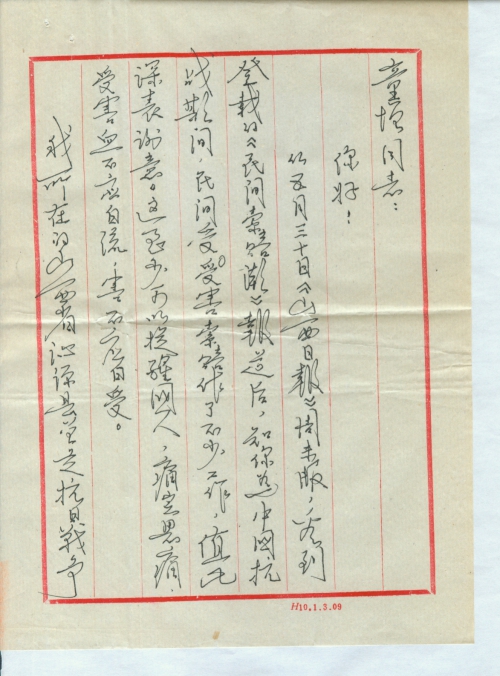 童增同志：
你好！
从五月三十日《山西日报》周末版，看到
登载的《民间索赔潮》报道后，知你为中国抗
战期间，民间受害索赔作了不少工作，值此
深表谢意。这至少可以提醒国人，痛定思痛，
受害血不应白流，害不应白受。
我所在的山西省沁源县是抗日战争
H10.1.3.09